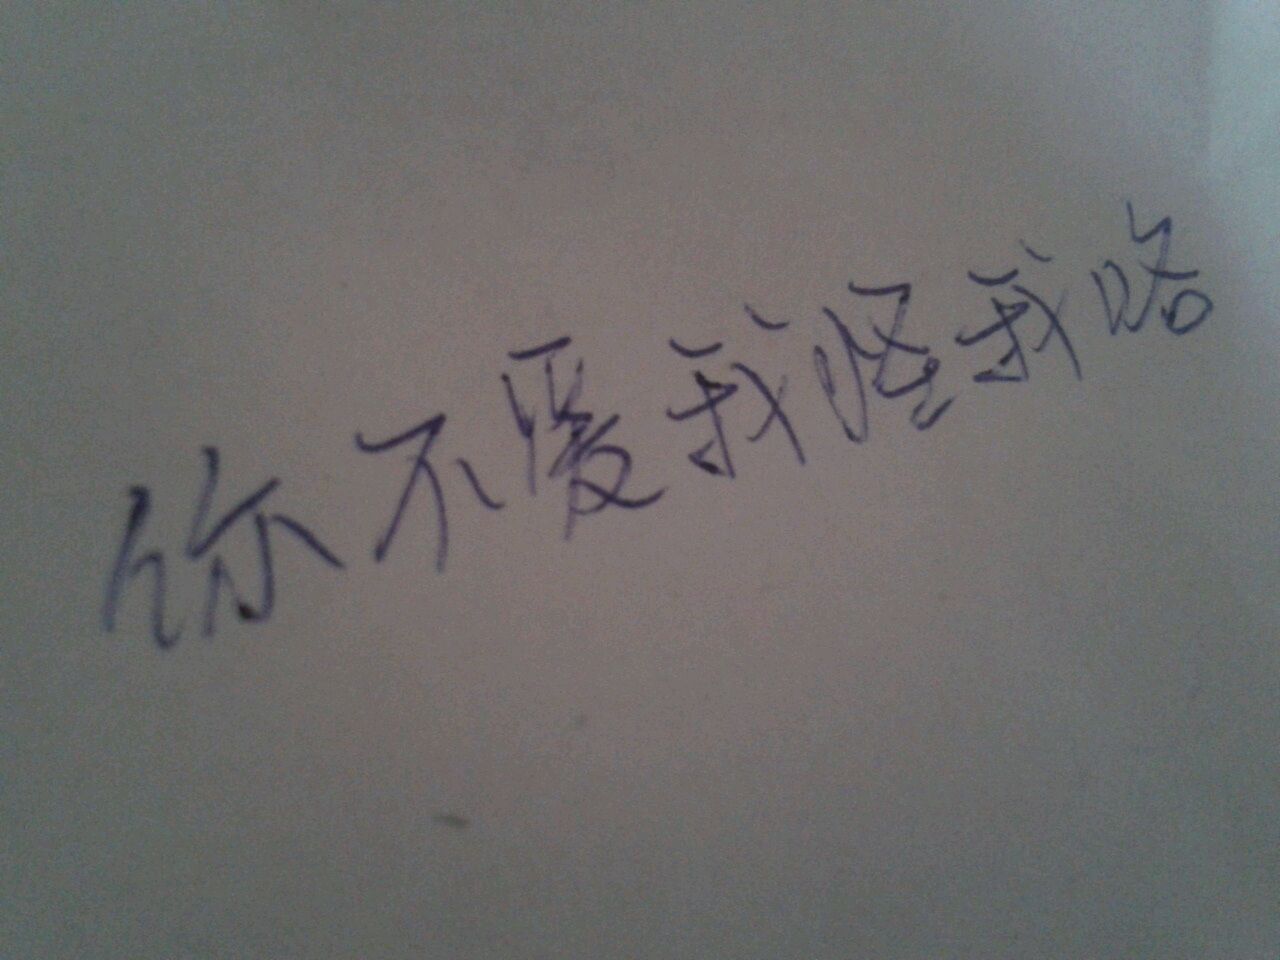 你不爱我怪我咯